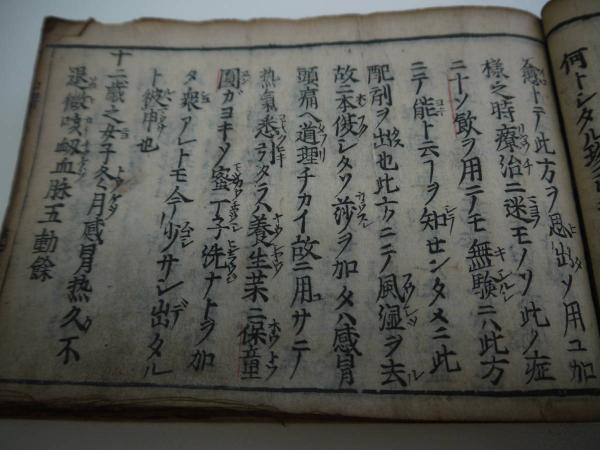 何トシタル
トテ此方ヲ思出ソ用ユ加
様之時療治ニ迷モノソ此ノ症
ニナソ飲ヲ用ニテモ無験ニハ此方
ニテ能ト云ヿヲ知センタメニ此
配剤ヲ出也此方ニテ風湿ヲ去
故ニ本使シタソ莎ヲ加タハ感冒
頭痛ヘ道理チカイ故ニ用サニテ
熱氣悉引タラハ養生薬ニ保童
圓カヨキソ蜜丁子洗ナトヲ加
タ衆アレトモ今少サン出タル
ト彼申也
十二歳之女子冬月感冒熱久不
退微咳衂血脉五動餘